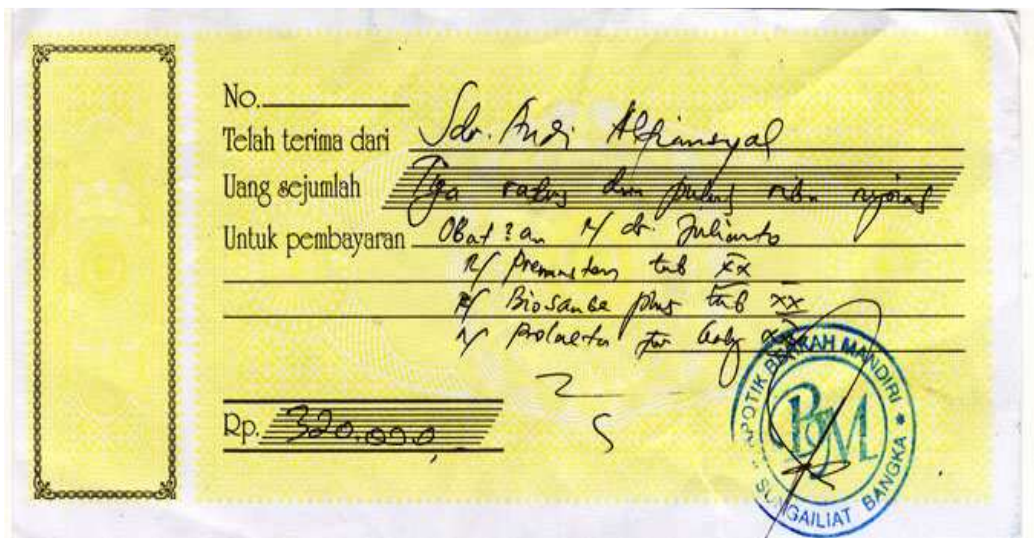 No.
Telah terima dari Sdr. Andi Alfiansyah
Uang sejumlah Tiga ratus dua puluh ribu rupiah
Untuk pembayaran Obat2an R/ dr. Julianto
R/ Premaston tab XX
R/ Biosanbe plus tab XX
R/ Prolacta for baby
Rp. 320.000,-
APOTIK BERKAH MANDIRI
BM
SUNGAILIAT BANGKA